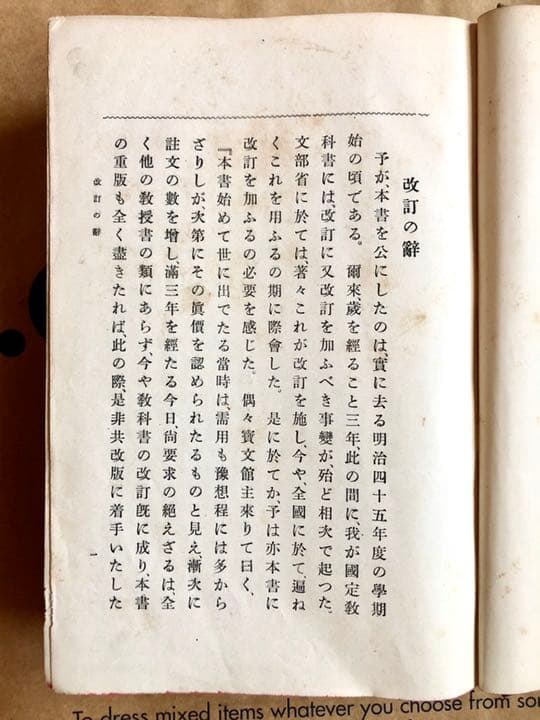 改訂の辭
予が、本書を公にしたのは、實に去る明治四十五年度の學期
始の頃である。爾來、歲を經ること三年、此の間に、我が國定敎
科書には、改訂に又改訂を加ふべき事變が、殆ど相次で起つた。
文部省に於ては、著々これが改訂を施し、今や、全國に於て、遍ね
くこれを用ふるの期に際會した。是に於てか、予は亦本書に
改訂を加ふるの必要を感じた。偶々寶文館主來りて曰く、
『本書始めて世に出でたる當時は、需用も豫想程には多から
ざりしが、次第にその眞價を認められたるものと見え、漸次に
註文の數を增し、滿三年を經たる今日、尙要求の絕えざるは、全
く他の敎授書の類にあらず、今や敎科書の改訂旣に成り、本書
の重版も全く盡きたれば、此の際是非共改版に着手いたした
改訂の辭
一
To dress mixed items whatever you choose from som